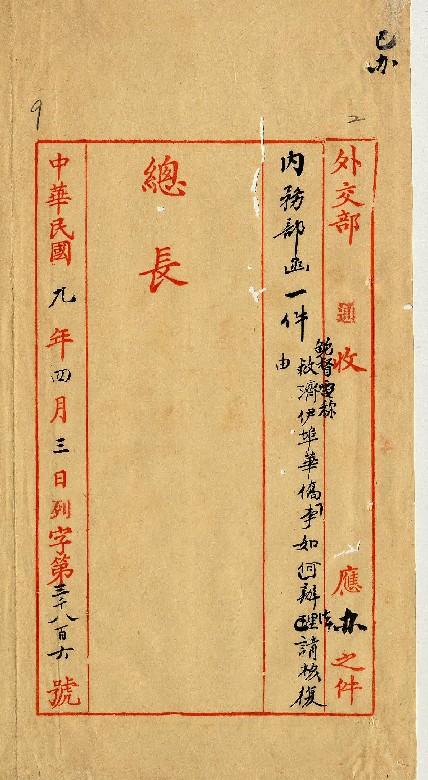 已办
2
9
外交部 收 應办之件
内務部函一件
鮑督電称
救濟伊埠華僑事如何辦理請核復
由
總長
中華民國九年四月三日列字第三千八百六號